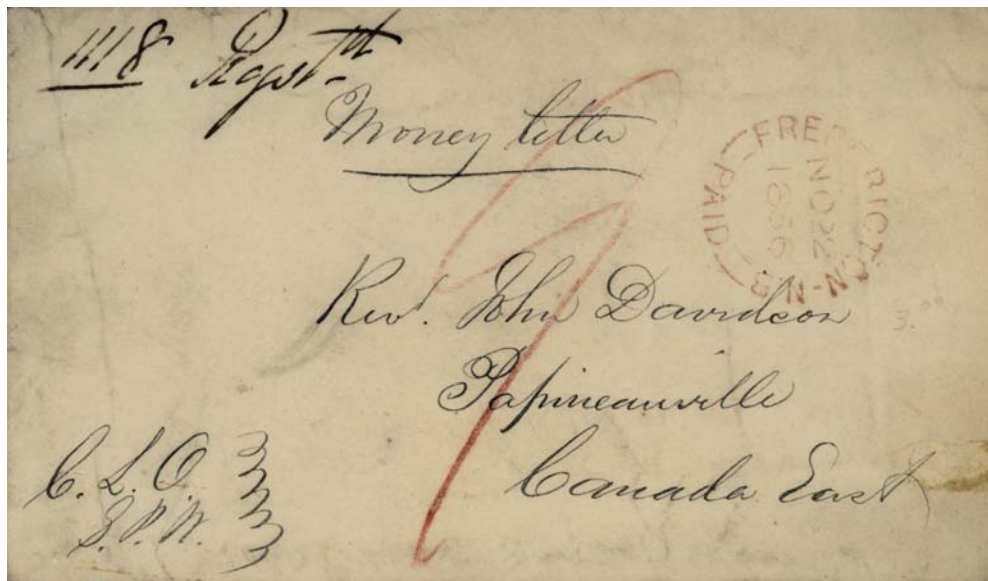 1118 Regist^d
Money letter
9
FREDERICTON-N-B
PAID
NO 22
1856
Rev^d. John Davidson
Papineauville
Canada East
C. L. O.